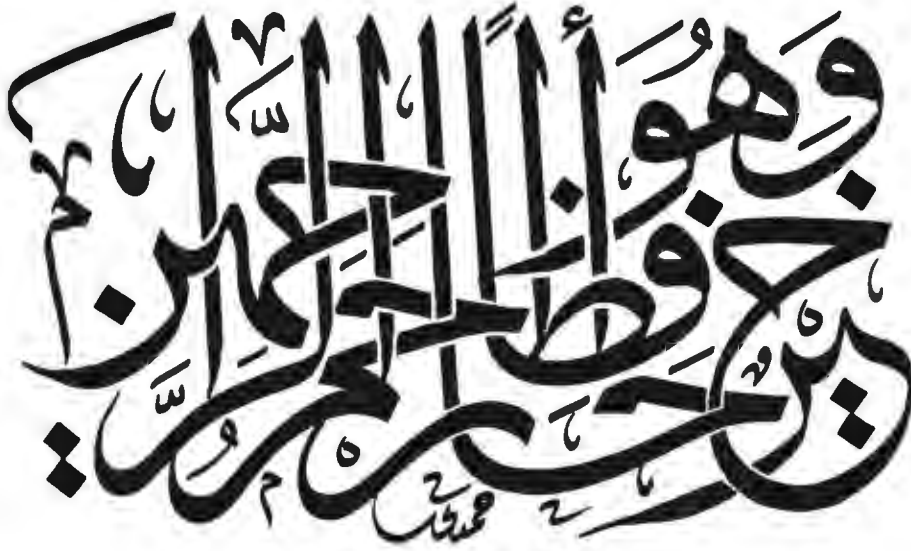 خَيْرٌ حَافِظًا وَهُوَ أَرْحَمُ الرَّاحِمِينَ